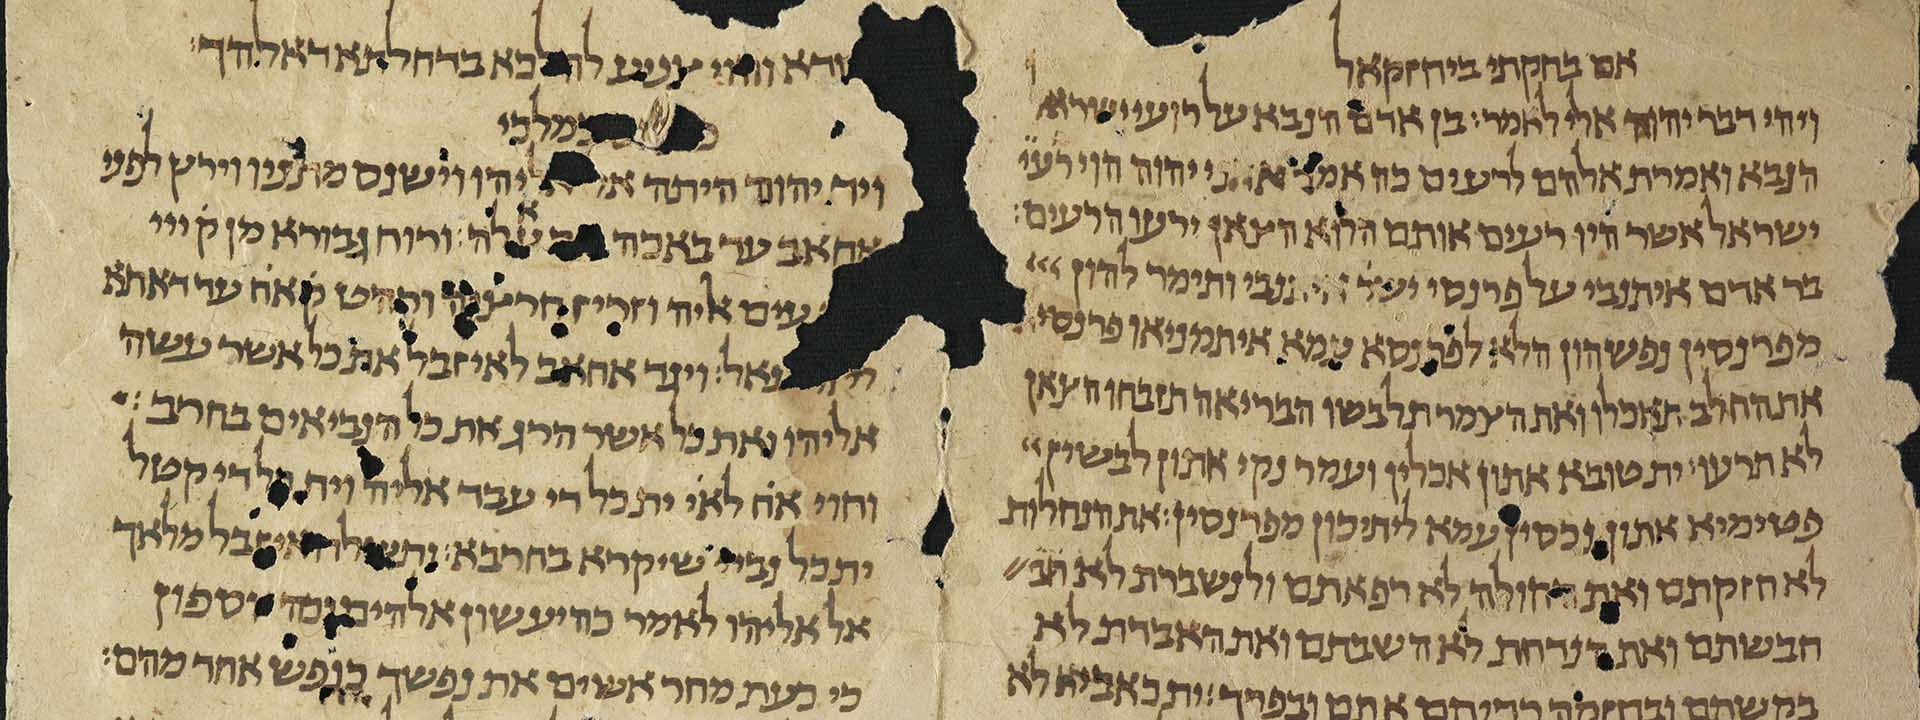 אם בחקתי ביחזקאל
ויהי דבר יהוה אלי לאמר: בן אדם הנבא על רועי ישורא
הנבא ואמרת אלהם לרעים כה אמר יהוה הוי רעי
ישראל אשר היו רעים אותם הלוא הצאן ירעו הרעים:
בר אדם איתנבי על פרנסי יש אתנבי ותימר להון
מפרנסין נפשהון הלא לפרנסא עמא איתמניאו פרנסי
את החלב תאכלו ואת הצמר תלבשו הבריאה תזבחו הצאן
לא תרעו: ית טובא אתון אכלין ועמר נקי אתון לבשין
פטימיא אתון נכסין עמא ליתיכון מפרנסין: את הנחלות
לא חזקתם ואת החולה לא רפאתם ולנשברת לא חב
חבשתם ואת הנדחת לא השבתם ואת האבדת לא
בקשתם ובחזקה רדיתם אתם ובפרך: ית כאביא לא
לתלא בדחלתא דאלהך:
במלכי
ויד יהוה היתה אל אליהו וישנס מתניו וירץ לפני
אחאב עד באכה ורוח גבורא מן ק ייי
עים אליה וזריז חרציה ורהט ק אח עד דאתא
ויגד אחאב לאיזבל את כל אשר עשה
אליהו ואת כל אשר הרג את כל הנביאים בחרב:
וחוי אח לאי ית כל די עבד אליה וית כל די קטל
ית כל נביי שיקרא בחרבא: ותשלח איזבל מלאך
אל אליהו לאמר כה יעשון אלהים וכה יספון
כי כעת מחר אשים את נפשך כנפש אחד מהם: